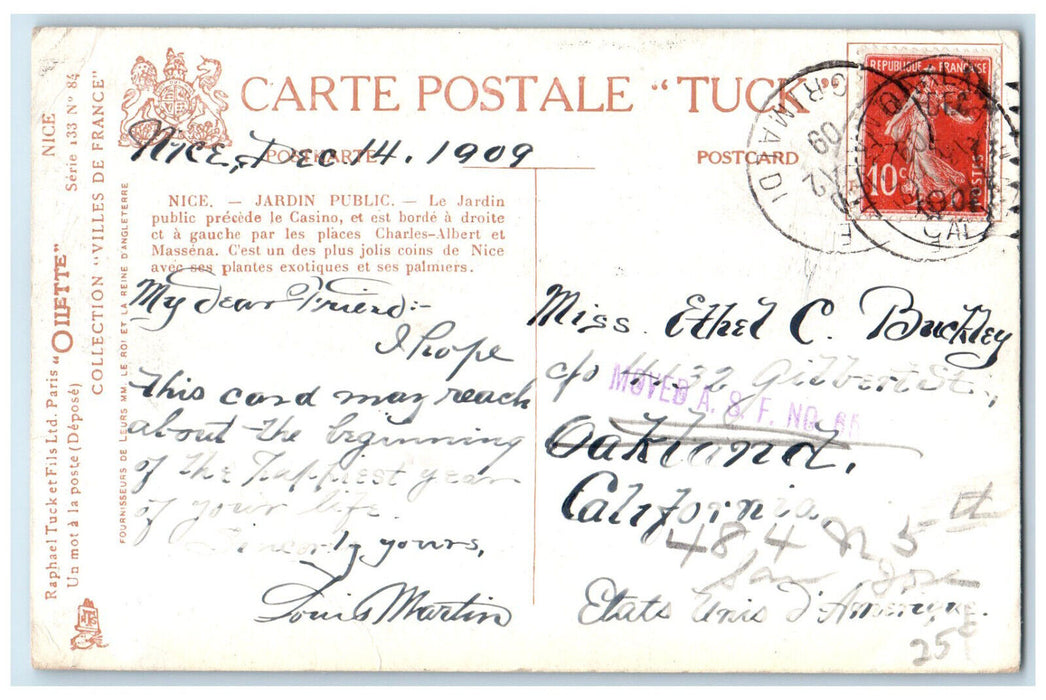 CARTE POSTALE "TUCK"
POSTKARTE
POSTCARD
Nice, Dec 14. 1909
NICE. — JARDIN PUBLIC. — Le Jardin
public précède le Casino, et est bordé à droite
et à gauche par les places Charles-Albert et
Masséna. C'est un des plus jolis coins de Nice
avec ses plantes exotiques et ses palmiers.
My dear Friend:-
I hope
this card may reach
about the beginning
of the happiest year
of your life.
Sincerely yours,
Louis Martin
Miss. Ethel C. Buckley
c/o 1132 Gilbert St.,
MOVED A. S. F. NO.
Oakland,
California
484 N 5th
San Jose
Etats Unis d'Amerique.
25¢
REPUBLIQUE FRANÇAISE
10c
POSTES
GRIMALDI
09
NICE
Série 133 No 84
COLLECTION "VILLES DE FRANCE"
Raphael Tuck et Fils Ltd. Paris "OILETTE"
Un mot à la poste (Déposé)
FOURNISSEURS DE LEURS MM. LE ROI ET LA REINE D'ANGLETERRE